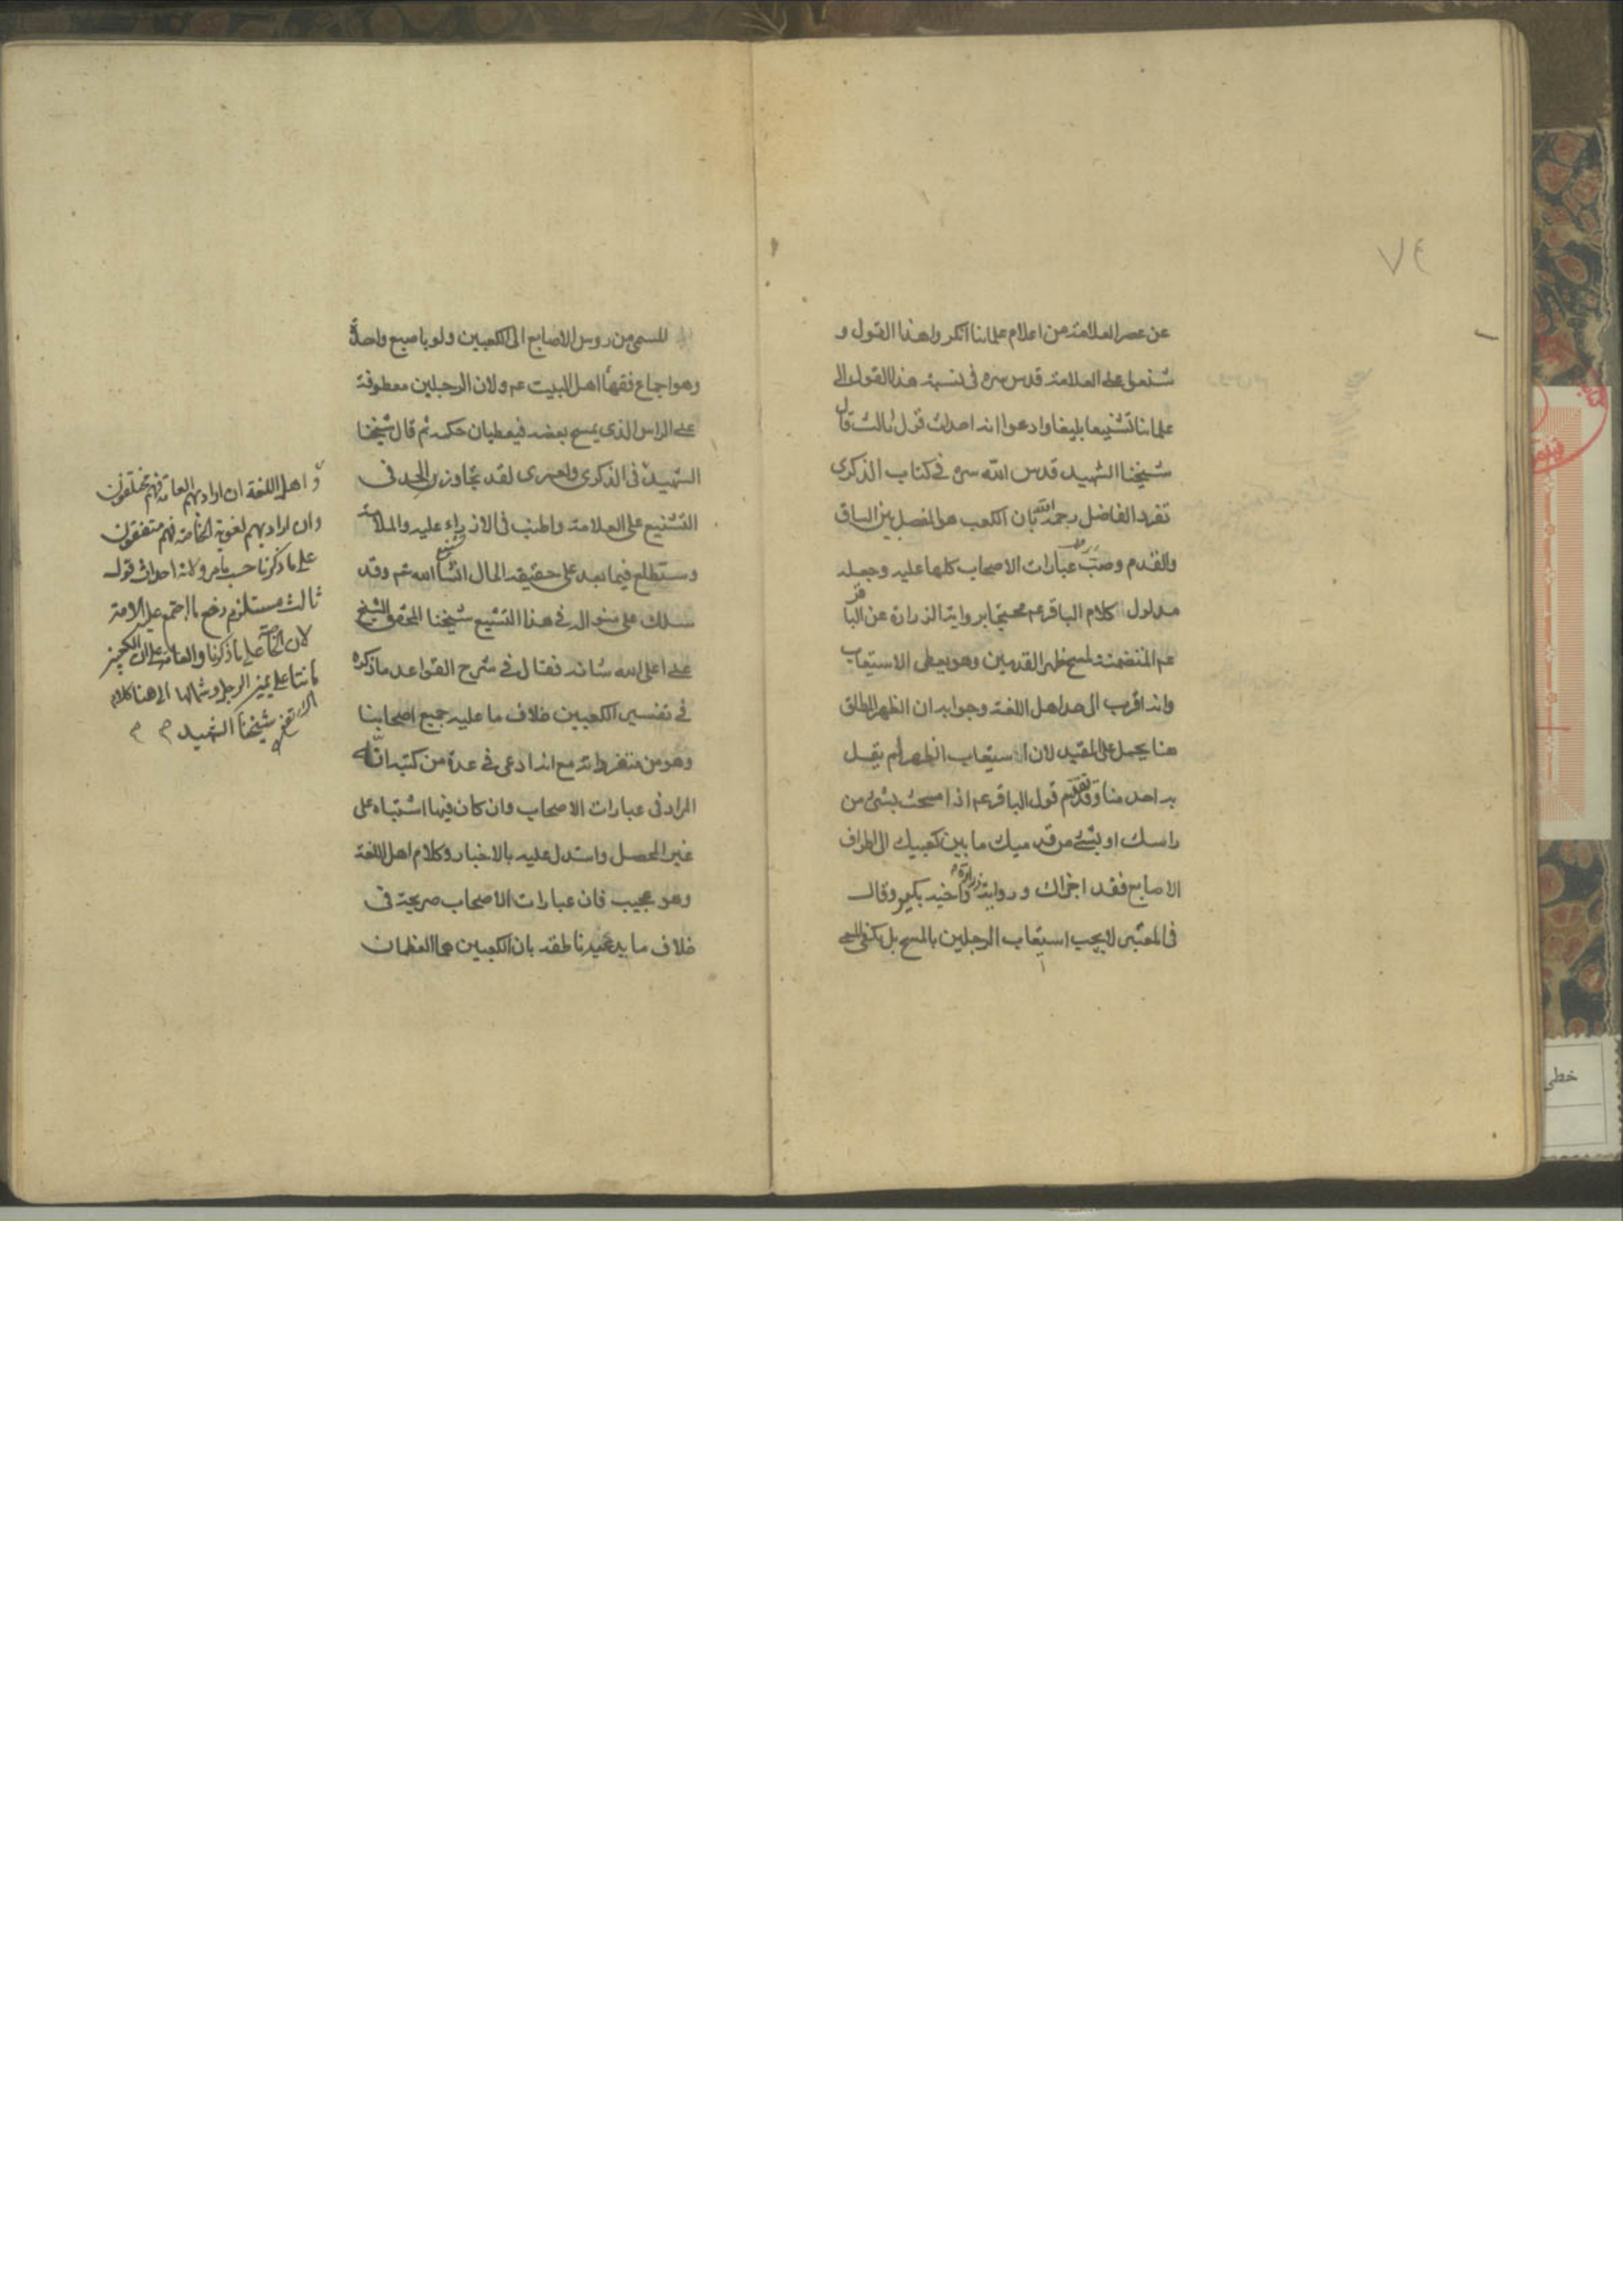 ٧٤
عن عصر العلامة من اعلام علمائنا انكروا هذا القول و
شنعوا على العلامة قدس سره فى نسبة هذا القول الى
علمائنا تشنيعا بليغا وادعوا انه احداث قول ثالث قال
شيخنا الشهيد قدس الله سره فى كتاب الذكرى
تفرد الفاضل رحمه الله بان الكعب هو المفصل بين الساق
والقدم وصب عبارات الاصحاب كلها عليه وجعله
مدلول كلام الباقر عم محتجا برواية زرارة عن الباقر
عم المتضمنة لمسح ظهر القدمين وهو يعطى الاستيعاب
وانه اقرب الى حد اهل اللغة وجوابه ان الظهر المطلق
هنا يحمل على المقيد لان استيعاب الظهر لم يقل
به احد منا وقد تقدم قول الباقر عم اذا مسحت بشئ من
راسك او بشئ من قدميك ما بين كعبيك الى اطراف
الاصابع فقد اجزاك و رواية زرارة واخيه بكير وقال
فى المعتبر لا يجب استيعاب الرجلين بالمسح بل يكفى المسح
المسمى من روس الاصابع الى الكعبين ولو باصبع واحدة
وهو اجماع فقهاء اهل البيت عم ولان الرجلين معطوفة
على الراس الذى يمسح بعضه فيعطيان حكمه ثم قال شيخنا
الشهيد فى الذكرى ولعمرى لقد تجاوز الحد فى
التشنيع على العلامة واطنب فى الازراء عليه والملامة
وستطلع فيما بعد على حقيقة الحال انشاء الله تع وقد
سلك على منواله فى هذا التشنيع شيخنا المحقق الشيخ
على اعلى الله شانه فقال فى شرح القواعد ما ذكره
فى تفسير الكعبين خلاف ما عليه جميع اصحابنا
وهو من متفرداته مع انه ادعى فى عدة من كتبه انه
المراد فى عبارات الاصحاب وان كان فيها اشتباه على
غير المحصل واستدل عليه بالاخبار وكلام اهل اللغة
وهو عجيب فان عبارات الاصحاب صريحة فى
خلاف ما يدعيه ناطقة بان الكعبين هما العظمان
و اهل اللغة ان اراد بهم العامة فهم مختلفون
وان اراد بهم لغوية الخاصة فهم متفقون
على ما ذكرنا حسب ما مر ولانه احداث قول
ثالث مستلزم رفع ما اجتمع عليه الامة
لان الخاصة على ما ذكرنا والعامة على ان الكعبين
نابتتا على يمين الرجل وشمالها الى هنا كلام
شيخنا الشهيد
خطى